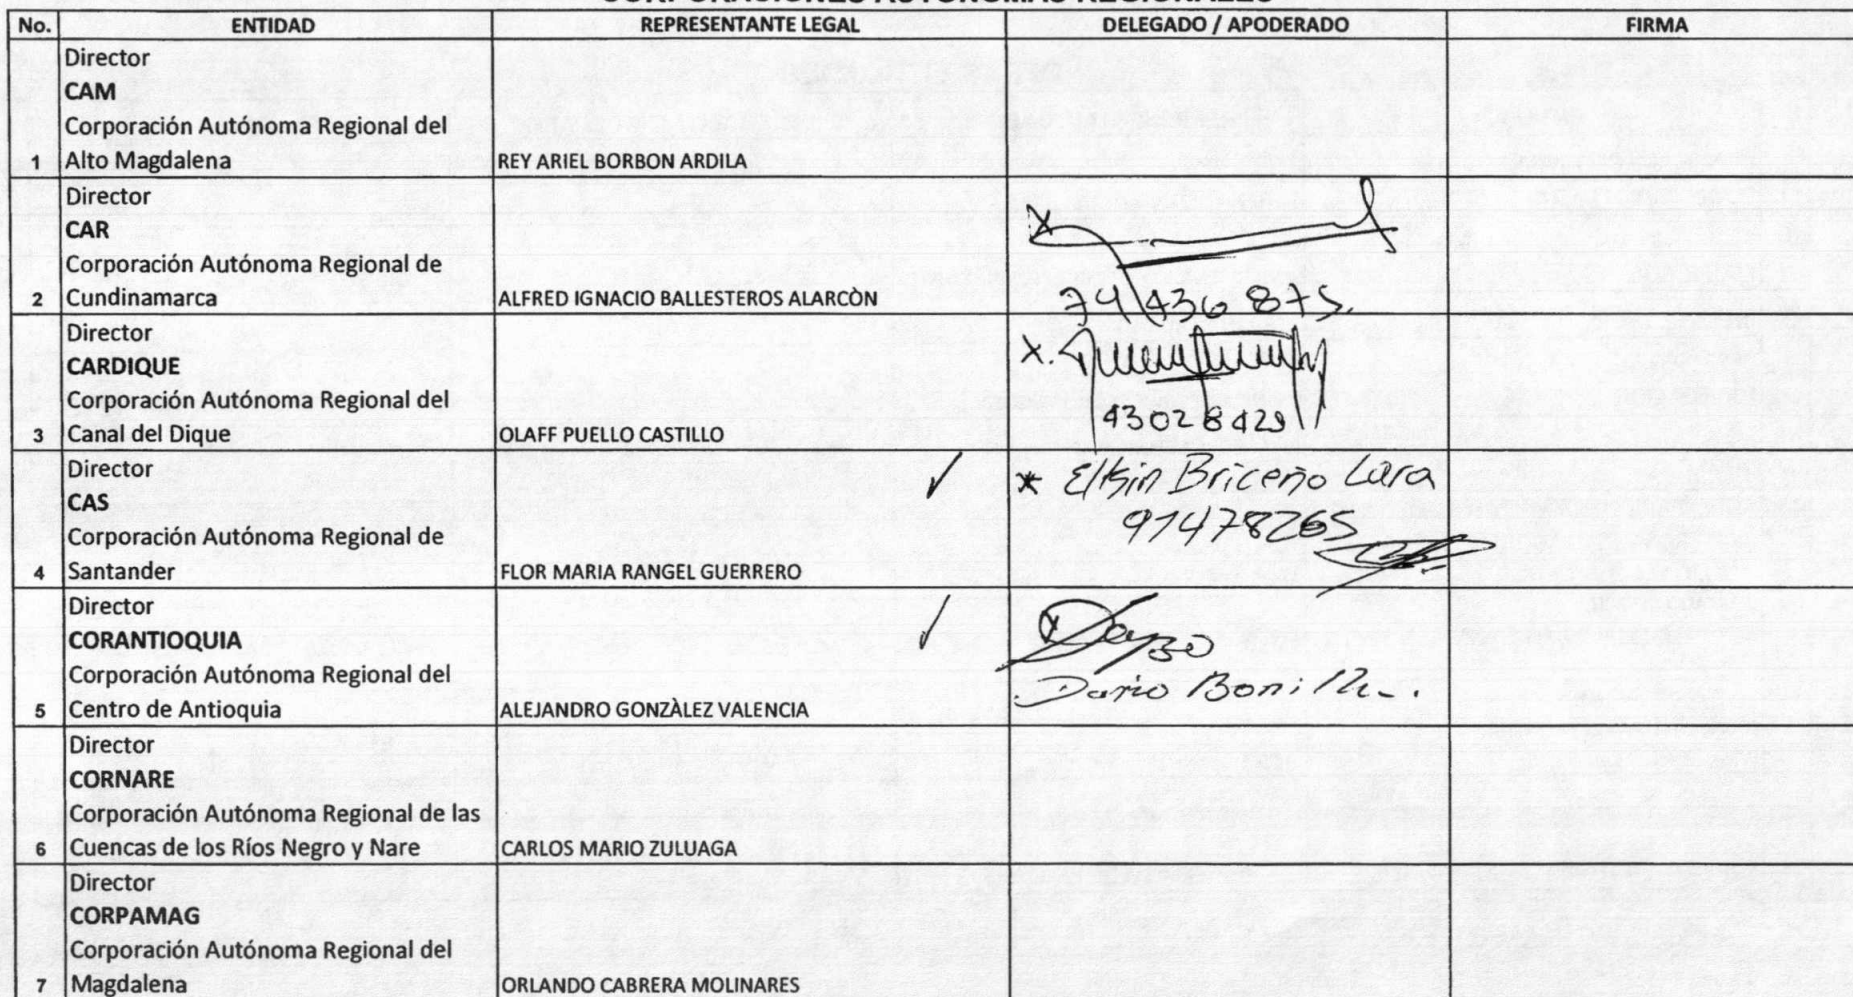 CORPORACIONES AUTÓNOMAS REGIONALES
No. ENTIDAD REPRESENTANTE LEGAL DELEGADO / APODERADO FIRMA
Director
CAM
Corporación Autónoma Regional del
1 Alto Magdalena REY ARIEL BORBON ARDILA
Director
CAR
Corporación Autónoma Regional de
2 Cundinamarca ALFRED IGNACIO BALLESTEROS ALARCÒN
74 436 875.
Director
CARDIQUE
Corporación Autónoma Regional del
43028429
3 Canal del Dique OLAFF PUELLO CASTILLO
Director
Elkin Briceño Lara
CAS
91478265
Corporación Autónoma Regional de
4 Santander FLOR MARIA RANGEL GUERRERO
Director
CORANTIOQUIA
Corporación Autónoma Regional del
Dario Bonilla
5 Centro de Antioquia ALEJANDRO GONZÀLEZ VALENCIA
Director
CORNARE
Corporación Autónoma Regional de las
6 Cuencas de los Ríos Negro y Nare CARLOS MARIO ZULUAGA
Director
CORPAMAG
Corporación Autónoma Regional del
7 Magdalena ORLANDO CABRERA MOLINARES